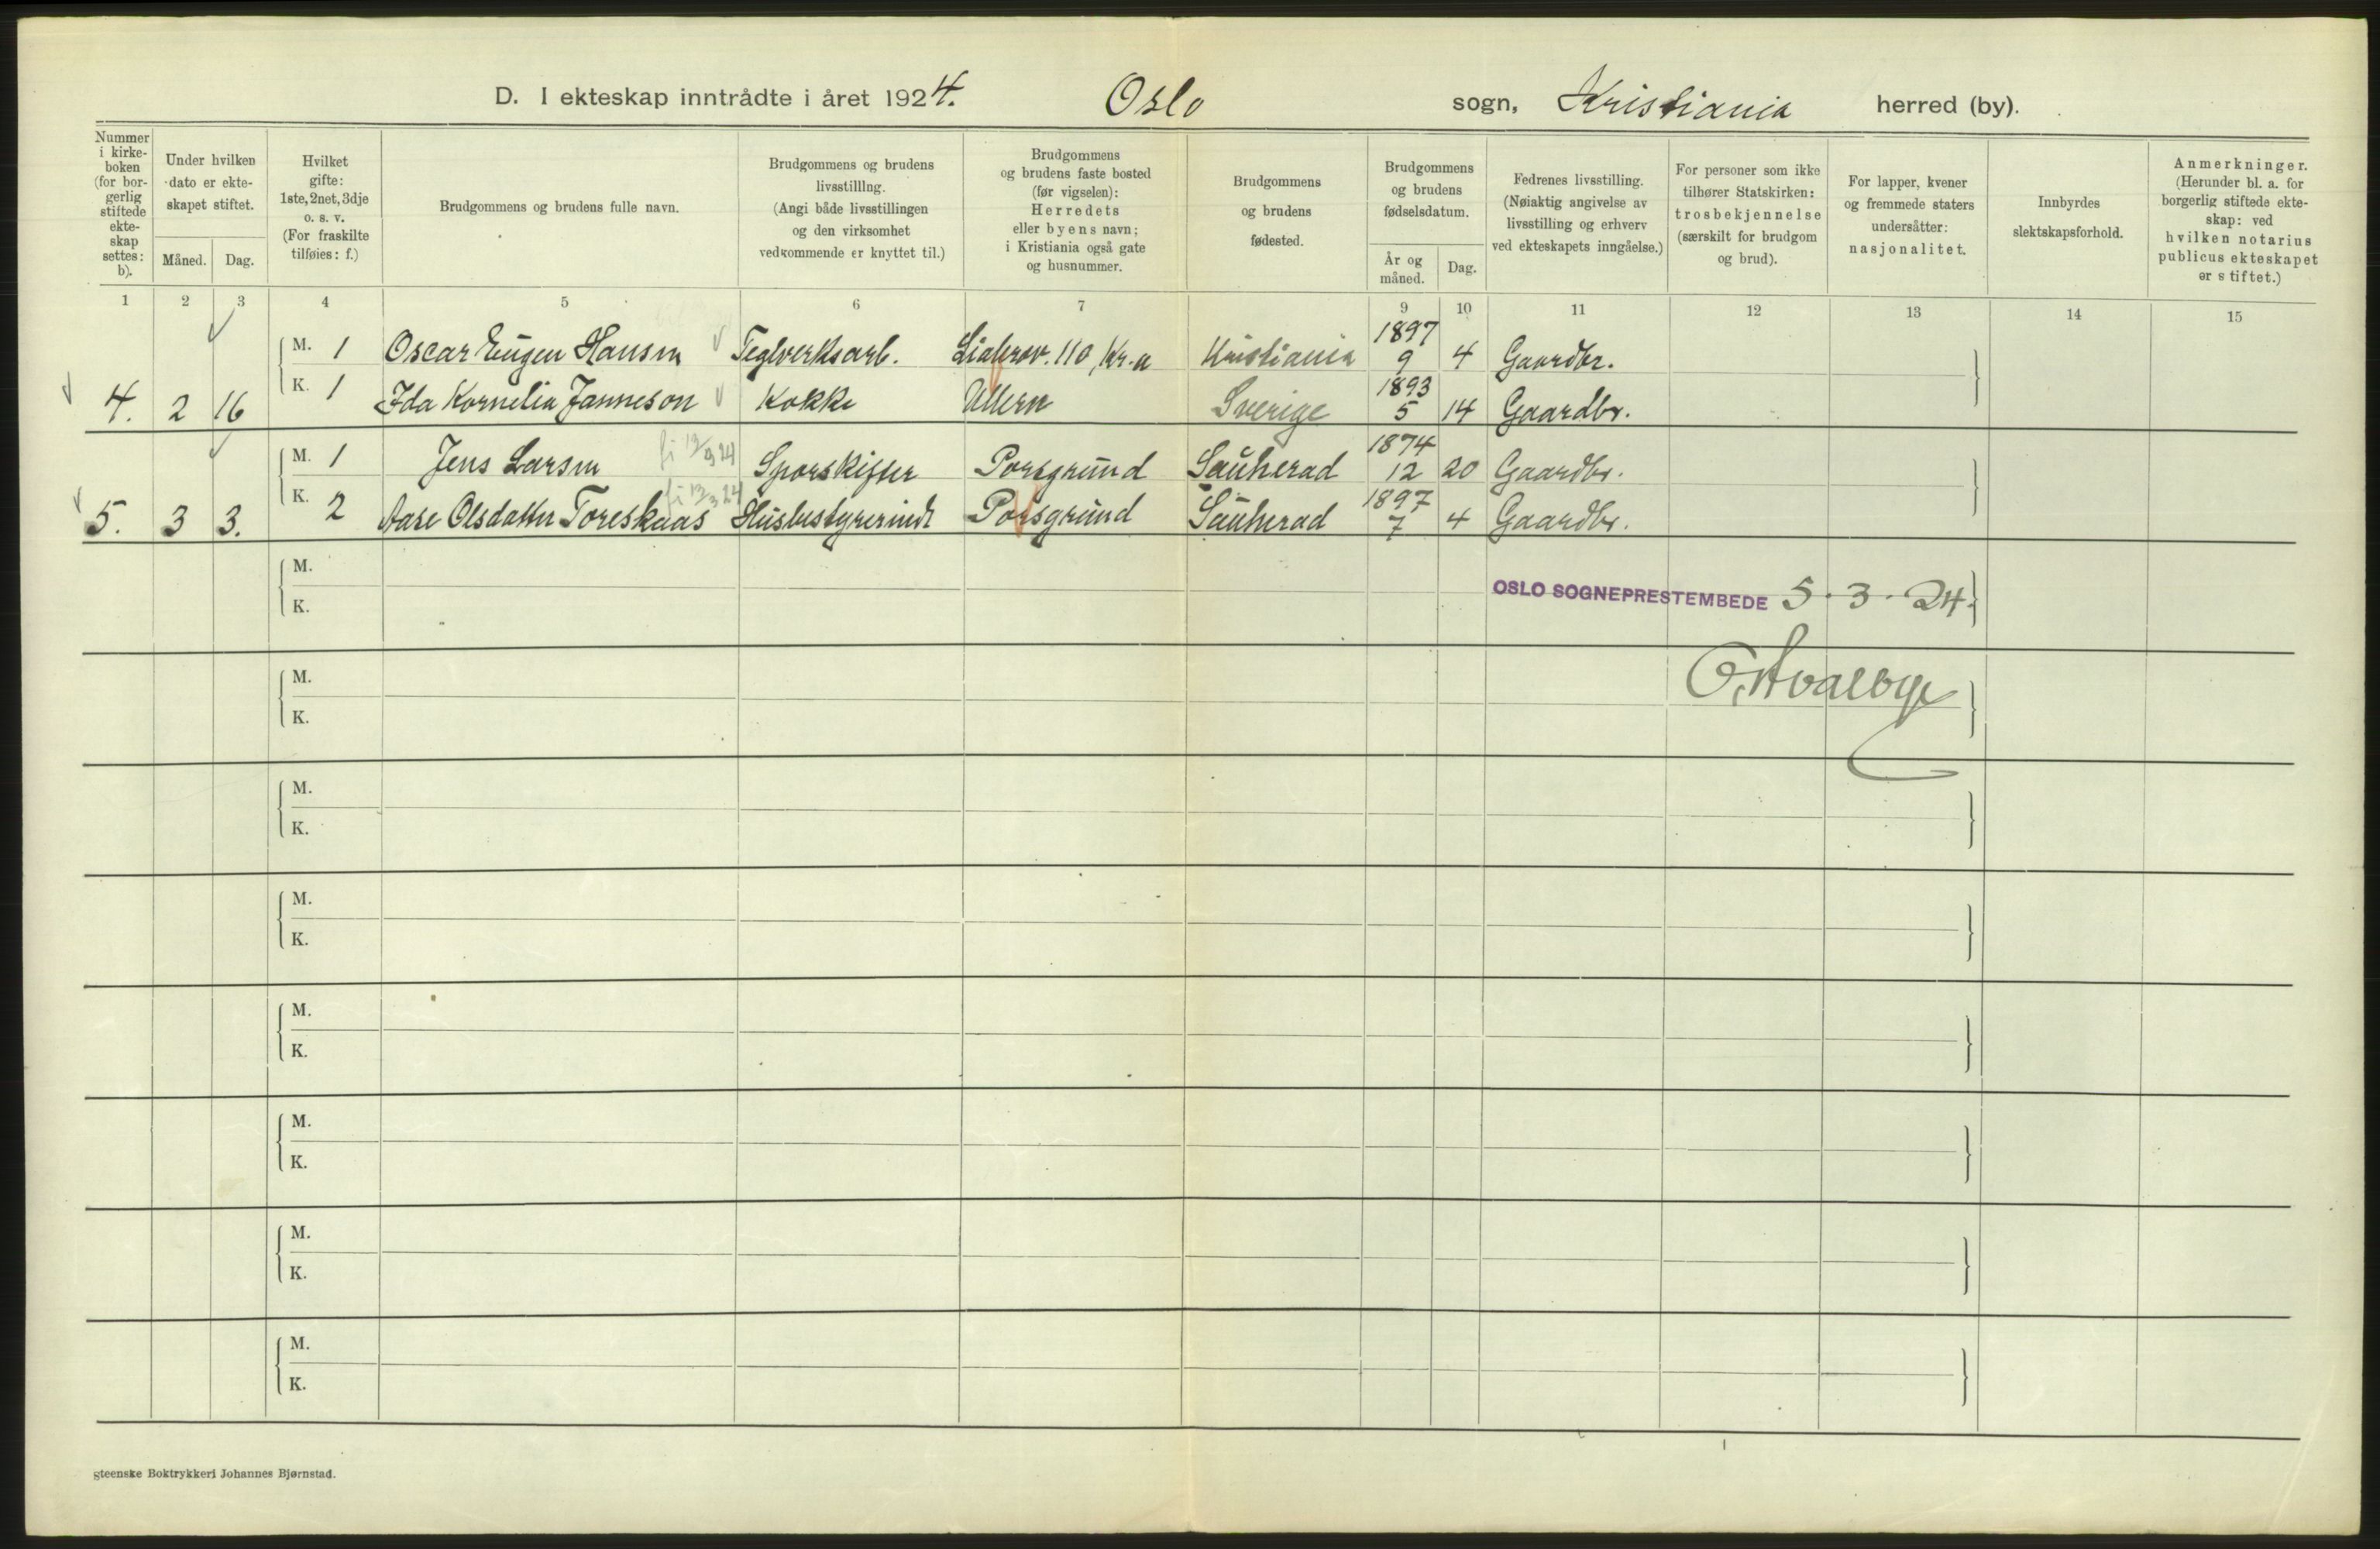 D. I ekteskap inntrådte i året 1924. Oslo sogn, Kristiania herred (by).
Nummer i kirke- boken (for bor- gerlig stiftede ekte- skap settes: b).
Under hvilken dato er ekte- skapet stiftet.
Måned. Dag.
Hvilket gifte: 1ste, 2net, 3dje o. s. v. (For fraskilte tilføies: f.)
Brudgommens og brudens fulle navn.
Brudgommens og brudens livsstilling. (Angi både livsstillingen og den virksomhet vedkommende er knyttet til.)
Brudgommens og brudens faste bosted (før vigselen): Herredets eller byens navn; i Kristiania også gate og husnummer.
Brudgommens og brudens fødested.
Brudgommens og brudens fødselsdatum.
År og måned. Dag.
Fedrenes livsstilling. (Nøiaktig angivelse av livsstilling og erhverv ved ekteskapets inngåelse.)
For personer som ikke tilhører Statskirken: trosbekjennelse (særskilt for brudgom og brud).
For lapper, kvener og fremmede staters undersåtter: nasjonalitet.
Innbyrdes slektskapsforhold.
Anmerkninger. (Herunder bl. a. for borgerlig stiftede ekte- skap: ved hvilken notarius publicus ekteskapet er stiftet.)
1 2 3 4 5 6 7 9 10 11 12 13 14 15
M. 1 Oscar Eugen Hansen Teglverksarb. 110, Kr.a Kristiania 1897 9 4 Gaardbr.
4. 2 16 K. 1 Ida Kornelia Janneson Kokke Ullern Sverige 1893 5 14 Gaardbr.
M. 1 Jens Larsen Sporskifter Porsgrund Sauherad 1874 12 20 Gaardbr.
5. 3 3. K. 2 Aase Olsdatter Toreskaas Husbestyrerinde Porsgrund Sauherad 1897 7 4 Gaardbr.
M.
K.
OSLO SOGNEPRESTEMBEDE 5.3.24.
M.
K.
M.
K.
M.
K.
M.
K.
M.
K.
M.
K.
M.
K.
steenske Boktrykkeri Johannes Bjørnstad.